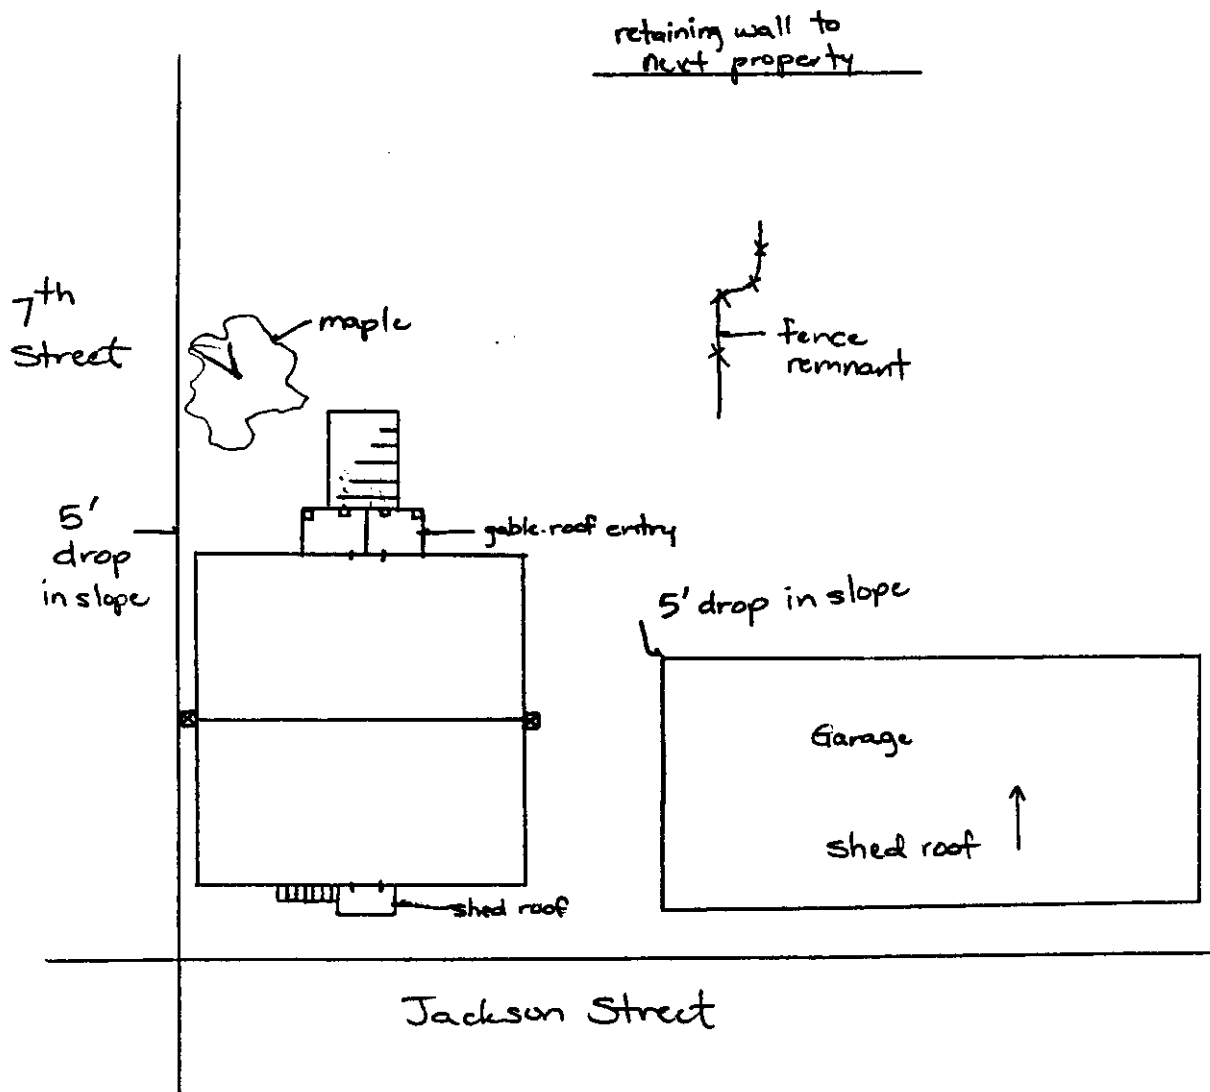 retaining wall to
next property
7th
Street
maple
fence
remnant
5'
drop
in slope
gable-roof entry
5' drop in slope
Garage
shed roof
shed roof
Jackson Street